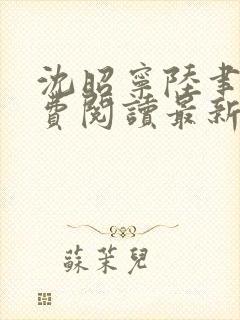 沈昭寧陸聿
費閱讀最新
蘇茉兒